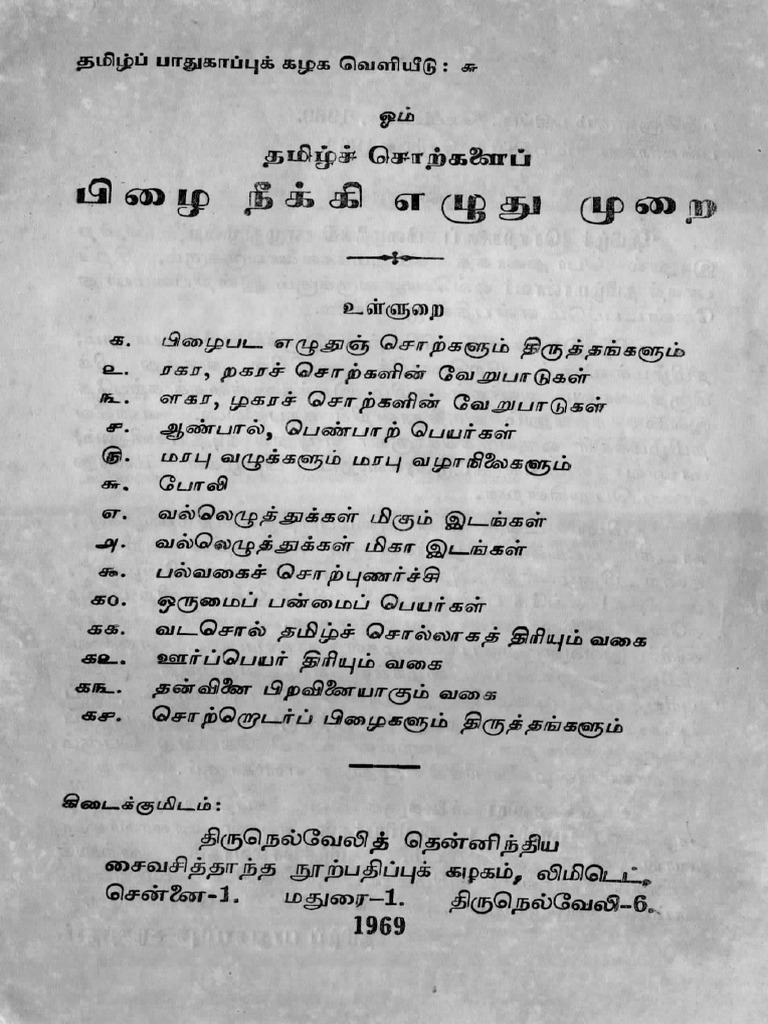 தமிழ்ப் பாதுகாப்புக் கழக வெளியீடு : ௬
ஓம்
தமிழ்ச் சொற்களைப்
பிழை நீக்கி எழுது முறை
உள்ளுறை
௧. பிழைபட எழுதுஞ் சொற்களும் திருத்தங்களும்
௨. ரகர, றகரச் சொற்களின் வேறுபாடுகள்
௩. ளகர, ழகரச் சொற்களின் வேறுபாடுகள்
௪. ஆண்பால், பெண்பாற் பெயர்கள்
௫. மரபு வழுக்களும் மரபு வழாநிலைகளும்
௬. போலி
௭. வல்லெழுத்துக்கள் மிகும் இடங்கள்
௮. வல்லெழுத்துக்கள் மிகா இடங்கள்
௯. பல்வகைச் சொற்புணர்ச்சி
௧௦. ஒருமைப் பன்மைப் பெயர்கள்
௧௧. வடசொல் தமிழ்ச் சொல்லாகத் திரியும் வகை
௧௨. ஊர்ப்பெயர் திரியும் வகை
௧௩. தன்வினை பிறவினையாகும் வகை
௧௪. சொற்றொடர்ப் பிழைகளும் திருத்தங்களும்
கிடைக்குமிடம் :
திருநெல்வேலித் தென்னிந்திய
சைவசித்தாந்த நூற்பதிப்புக் கழகம், லிமிடெட்,
சென்னை-1. மதுரை-1. திருநெல்வேலி-6.
1969